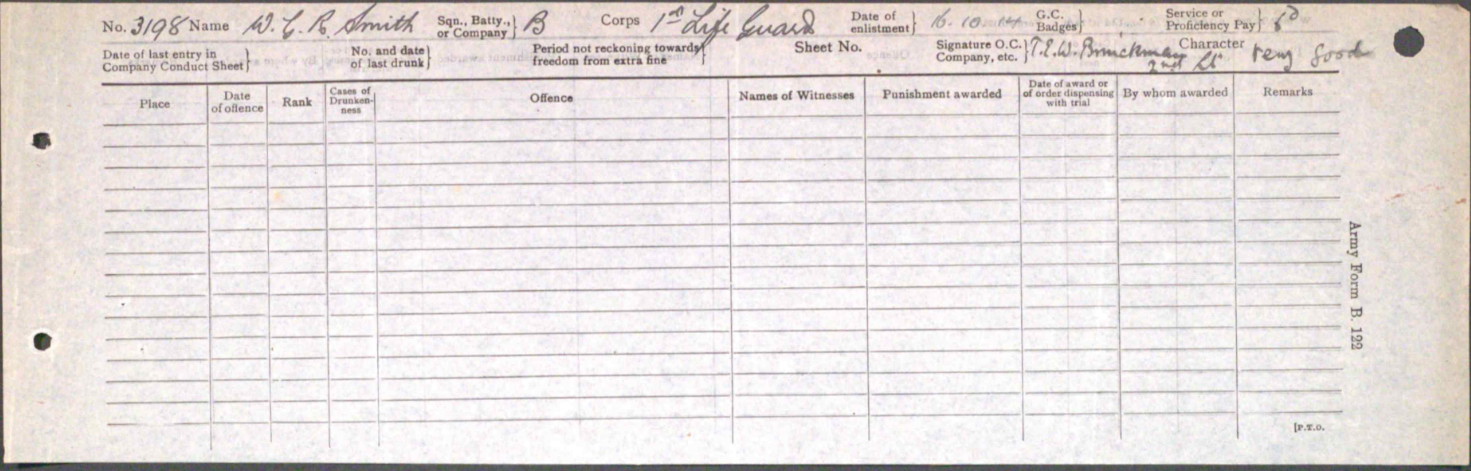 No. 3198 Name W. C. R. Smith Sqn., Batty., or Company } B Corps 1st Life Guards Date of enlistment } 16.10.14 G.C. Badges } Service or Proficiency Pay } 6d
Date of last entry in Company Conduct Sheet } No. and date of last drunk } Period not reckoning towards freedom from extra fine } Sheet No. Signature O.C. Company, etc. } 2nd Lt Character Very Good
Place Date of offence Rank Cases of Drunken-ness Offence Names of Witnesses Punishment awarded Date of award or of order dispensing with trial By whom awarded Remarks
Army Form B. 122
[P.T.O.